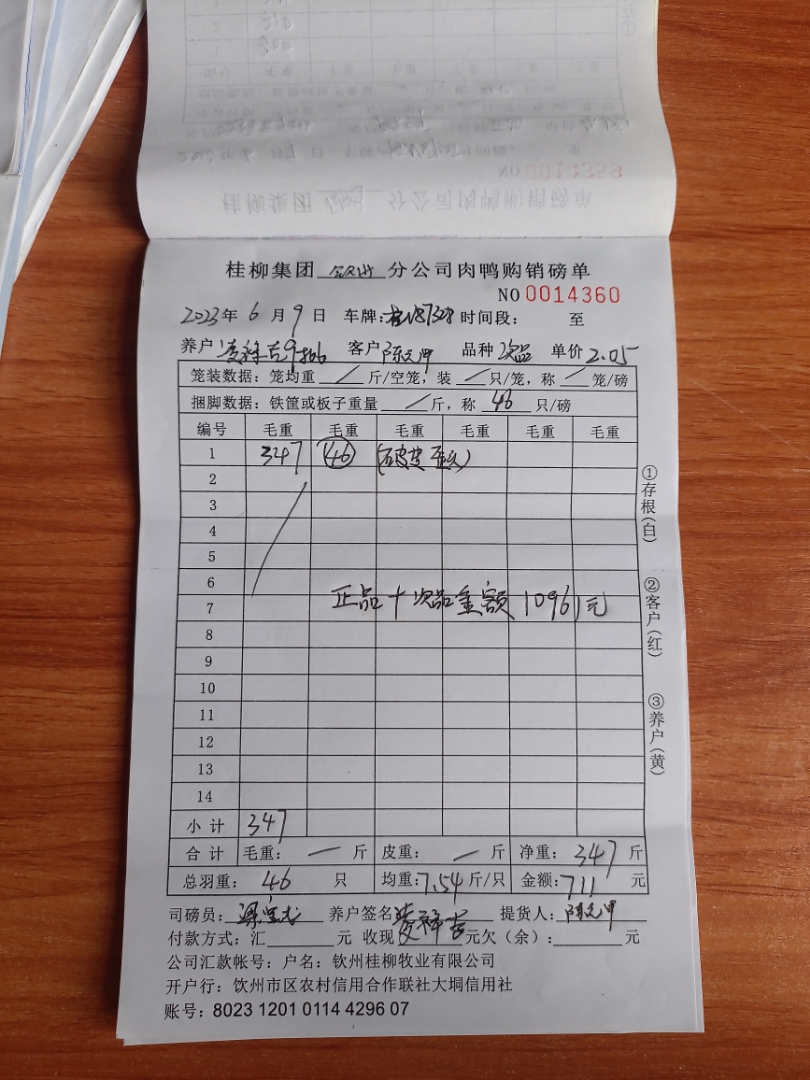 桂柳集团 钦州 分公司肉鸭购销磅单
NO 0014360
2023年 6月 9日 车牌: 时间段: 至
养户 客户 陈 品种 次品 单价 2.05
笼装数据: 笼均重 / 斤/空笼, 装 / 只/笼, 称 / 笼/磅
捆脚数据: 铁筐或板子重量 / 斤, 称 46 只/磅
编号 毛重 毛重 毛重 毛重 毛重 毛重
1 347 46 (破皮
2
3
4
5
6
正品+次品金额 10961元
7
8
9
10
11
12
13
14
小计 347
合计 毛重: — 斤 皮重: — 斤 净重: 347 斤
总羽重: 46 只 均重: 7.54 斤/只 金额: 711 元
司磅员: 梁 养户签名 提货人: 陈
付款方式: 汇 元 收现 元欠(余): 元
公司汇款帐号: 户名: 钦州桂柳牧业有限公司
开户行: 钦州市区农村信用合作联社大垌信用社
账号: 8023 1201 0114 4296 07
①存根(白)
②客户(红)
③养户(黄)